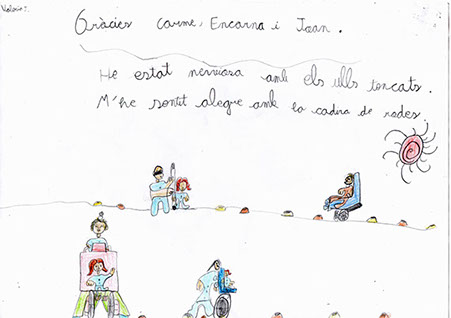 Gràcies Carme, Encarna i Joan.
He estat nerviosa amb els ulls tancats.
M'he sentit alegre amb la cadira de rodes.